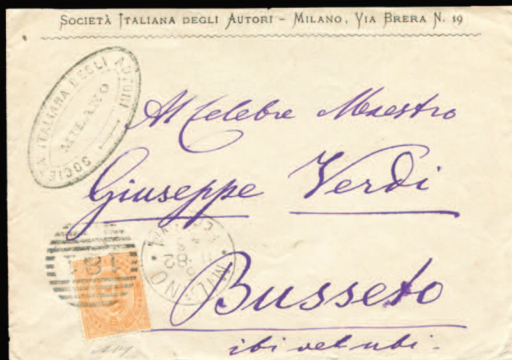 SOCIETÀ ITALIANA DEGLI AUTORI – MILANO, VIA BRERA N. 19
SOCIETÀ ITALIANA DEGLI AUTORI
MILANO
Al Celebre Maestro
Giuseppe Verdi
MILANO
82
Busseto
ibi vel ubi.